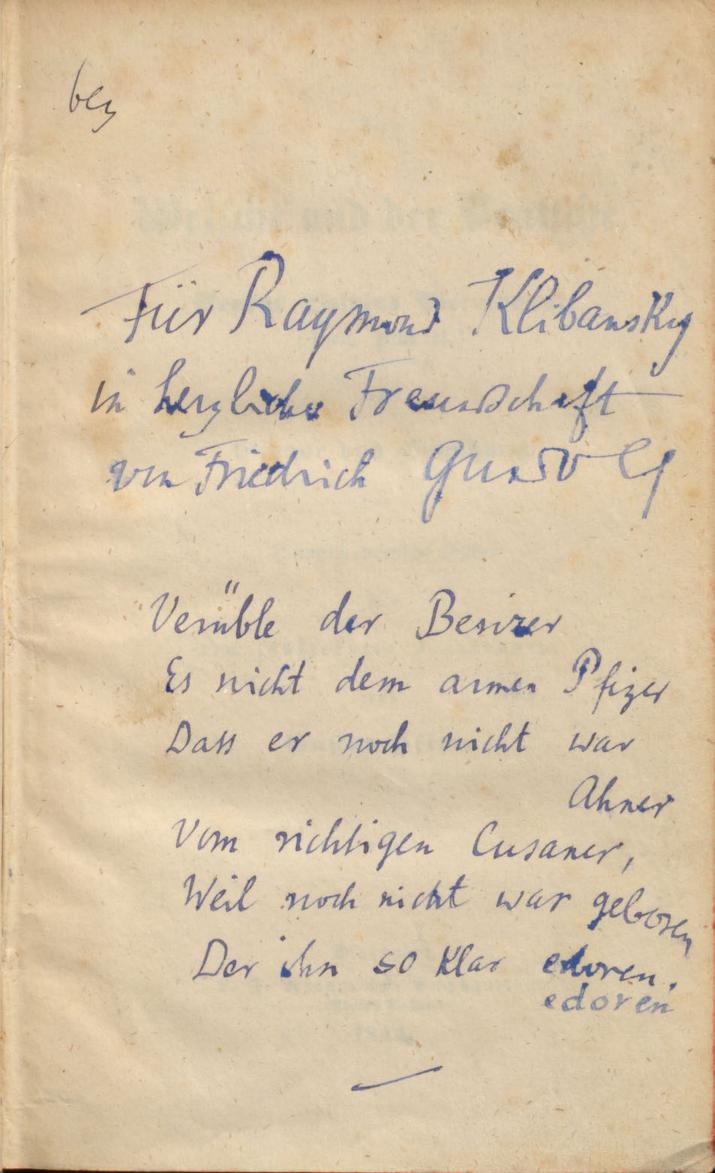 Für Raymond Klibansky
in herzlicher Freundschaft
von Friedrich Gundolf
Verüble der Besizer
Es nicht dem armen Pfizer
Dass er noch nicht war
Ahner
Vom richtigen Cusaner,
Weil noch nicht war geboren
Der ihn so klar edoren.
edoren